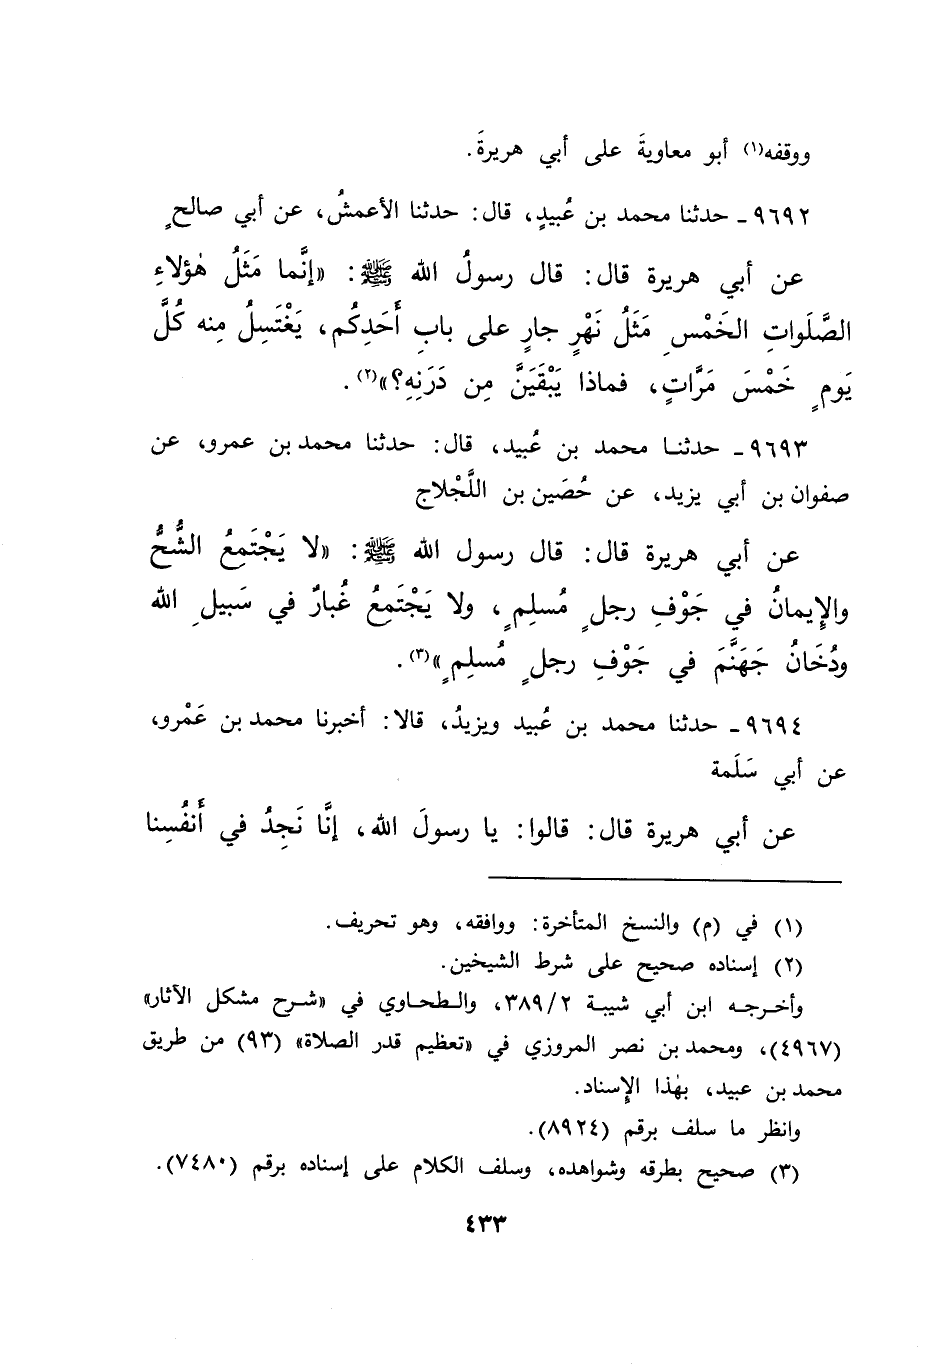 ووقفه(١) أبو معاويةَ على أبي هريرةَ.
٩٦٩٢ - حدثنا محمد بن عُبيدٍ، قال: حدثنا الأعمشُ، عن أبي صالحٍ
عن أبي هريرة قال: قال رسولُ الله ﷺ: «إنَّما مَثَلُ هٰؤلاءِ
الصَّلَواتِ الخَمْسِ مَثَلُ نَهْرٍ جارٍ على بابِ أَحَدِكُم، يَغْتَسِلُ مِنه كُلَّ
يَومٍ خَمْسَ مَرَّاتٍ، فماذا يَبْقَيَنَّ مِن دَرَنِهِ؟»(٢).
٩٦٩٣ - حدثنا محمد بن عُبيد، قال: حدثنا محمد بن عمرو، عن
صفوان بن أبي يزيد، عن حُصَين بن اللَّجْلاج
عن أبي هريرة قال: قال رسول الله ﷺ: «لا يَجْتَمِعُ الشُّحُّ
والإِيمانُ في جَوْفِ رجلٍ مُسلِمٍ، ولا يَجْتَمِعُ غُبارٌ في سَبيلِ الله
ودُخَانُ جَهَنَّمَ في جَوْفِ رجلٍ مُسلِمٍ»(٣).
٩٦٩٤ - حدثنا محمد بن عُبيد ويزيدُ، قالا: أخبرنا محمد بن عَمْرو،
عن أبي سَلَمة
عن أبي هريرة قال: قالوا: يا رسولَ الله، إنَّا نَجِدُ في أَنفُسِنا
(١) في (م) والنسخ المتأخرة: ووافقه، وهو تحريف.
(٢) إسناده صحيح على شرط الشيخين.
وأخرجه ابن أبي شيبة ٣٨٩/٢، والطحاوي في «شرح مشكل الآثار»
(٤٩٦٧)، ومحمد بن نصر المروزي في «تعظيم قدر الصلاة» (٩٣) من طريق
محمد بن عبيد، بهٰذا الإِسناد.
وانظر ما سلف برقم (٨٩٢٤).
(٣) صحيح بطرقه وشواهده، وسلف الكلام على إسناده برقم (٧٤٨٠).
٤٣٣